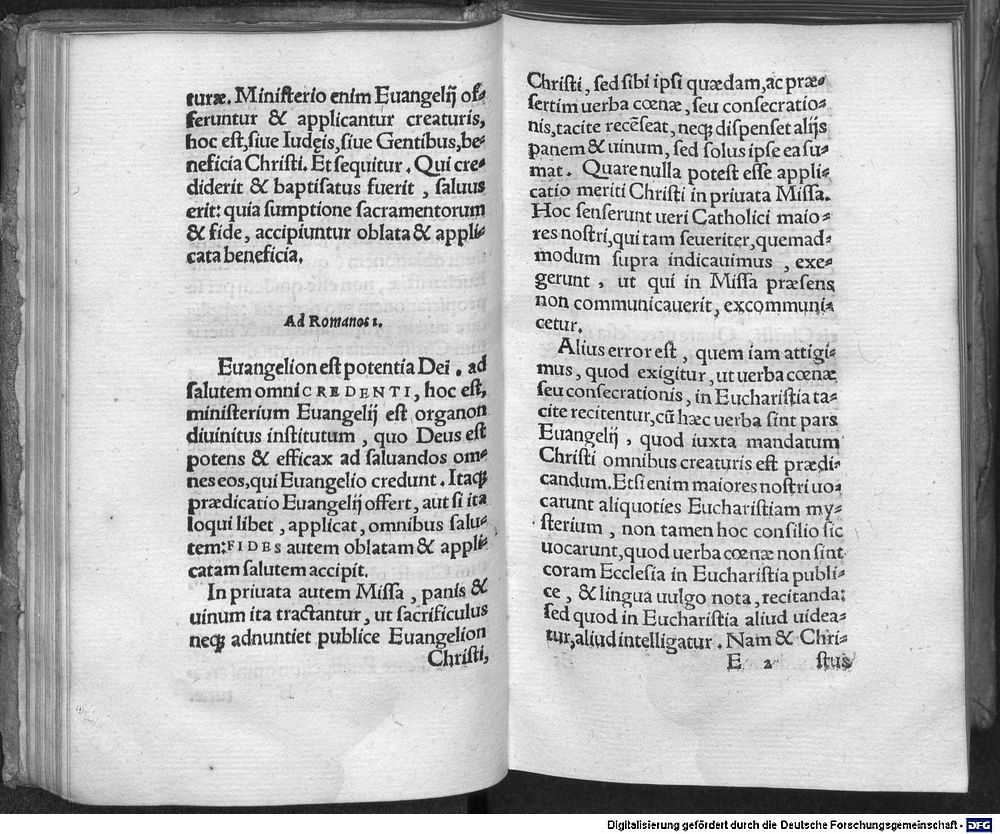 turæ. Ministerio enim Euangelij of-
feruntur & applicantur creaturis,
hoc est, siue Iudęis, siue Gentibus, be-
neficia Christi. Et sequitur. Qui cre-
diderit & baptisatus fuerit, saluus
erit: quia sumptione sacramentorum
& fide, accipiuntur oblata & appli-
cata beneficia.
Ad Romanos 1.
Euangelion est potentia Dei. ad
salutem omni CREDENTI, hoc est,
ministerium Euangelij est organon
diuinitus institutum, quo Deus est
potens & efficax ad saluandos om-
nes eos, qui Euangelio credunt. Itaq;
prædicatio Euangelij offert, aut si ita
loqui libet, applicat, omnibus salu-
tem: FIDES autem oblatam & appli-
catam salutem accipit.
In priuata autem Missa, panis &
uinum ita tractantur, ut sacrificulus
neq; adnuntiet publice Euangelion
Christi,
Christi, sed sibi ipsi quædam, ac præ-
sertim uerba cœnæ, seu consecratio-
nis, tacite recēseat, neq; dispenset alijs
panem & uinum, sed solus ipse ea su-
mat. Quare nulla potest esse appli-
catio meriti Christi in priuata Missa.
Hoc senserunt ueri Catholici maio-
res nostri, qui tam seueriter, quemad-
modum supra indicauimus, exe-
gerunt, ut qui in Missa præsens
non communicauerit, excommuni-
cetur.
Alius error est, quem iam attigi-
mus, quod exigitur, ut uerba cœnæ
seu consecrationis, in Eucharistia ta-
cite recitentur, cū hæc uerba sint pars
Euangelij, quod iuxta mandatum
Christi omnibus creaturis est prædi-
candum. Etsi enim maiores nostri uo-
carunt aliquoties Eucharistiam my-
sterium, non tamen hoc consilio sic
uocarunt, quod uerba cœnæ non sint
coram Ecclesia in Eucharistia publi-
ce, & lingua uulgo nota, recitanda:
sed quod in Eucharistia aliud uidea-
tur, aliud intelligatur. Nam & Chri-
E 2 stus
Digitalisierung gefördert durch die Deutsche Forschungsgemeinschaft - DFG